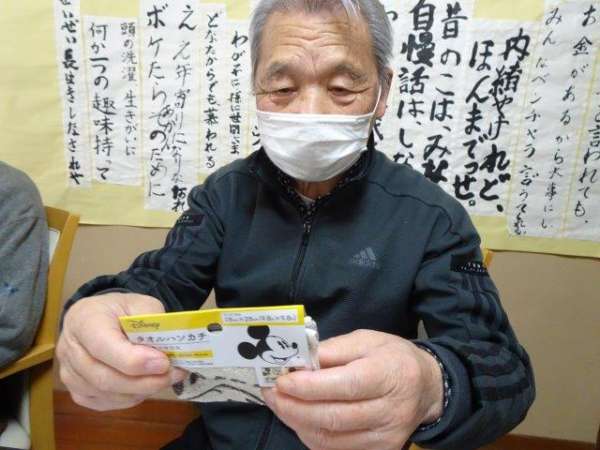 と言われても、
お金があるから大事にし
みんなベンチャラ言うてくれる
内緒やけれど、
ほんまでっせ。
昔のこはみな
自慢話はしな
わが子に孫に世間さま
どなたからでも慕われる
ええ年寄りになりなはれ
ボケたらあかんそのために
頭の洗濯 生きがいに
何か一つの趣味持って
せいぜい長生きしなされや
adidas
Disney
タオルハンカチ